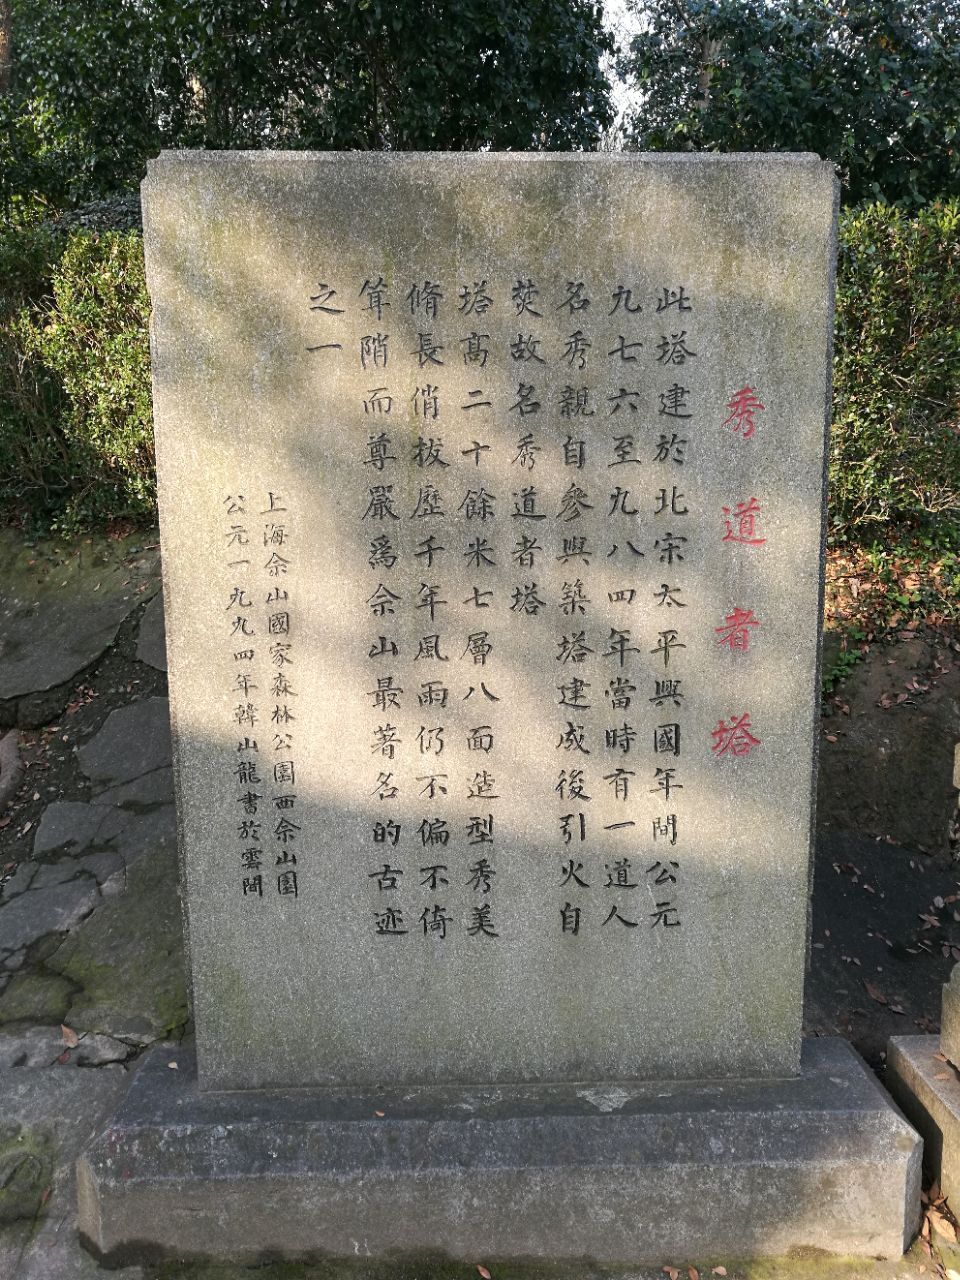 秀道者塔
此塔建於北宋太平興國年間公元
九七六至九八四年當時有一道人
名秀親自參與築塔建成後引火自
焚故名秀道者塔
塔高二十餘米七層八面造型秀美
脩長俏拔歷千年風雨仍不偏不倚
耸陗而尊嚴爲佘山最著名的古迹
之一
上海佘山國家森林公園西佘山園
公元一九九四年韓山龍書於雲間